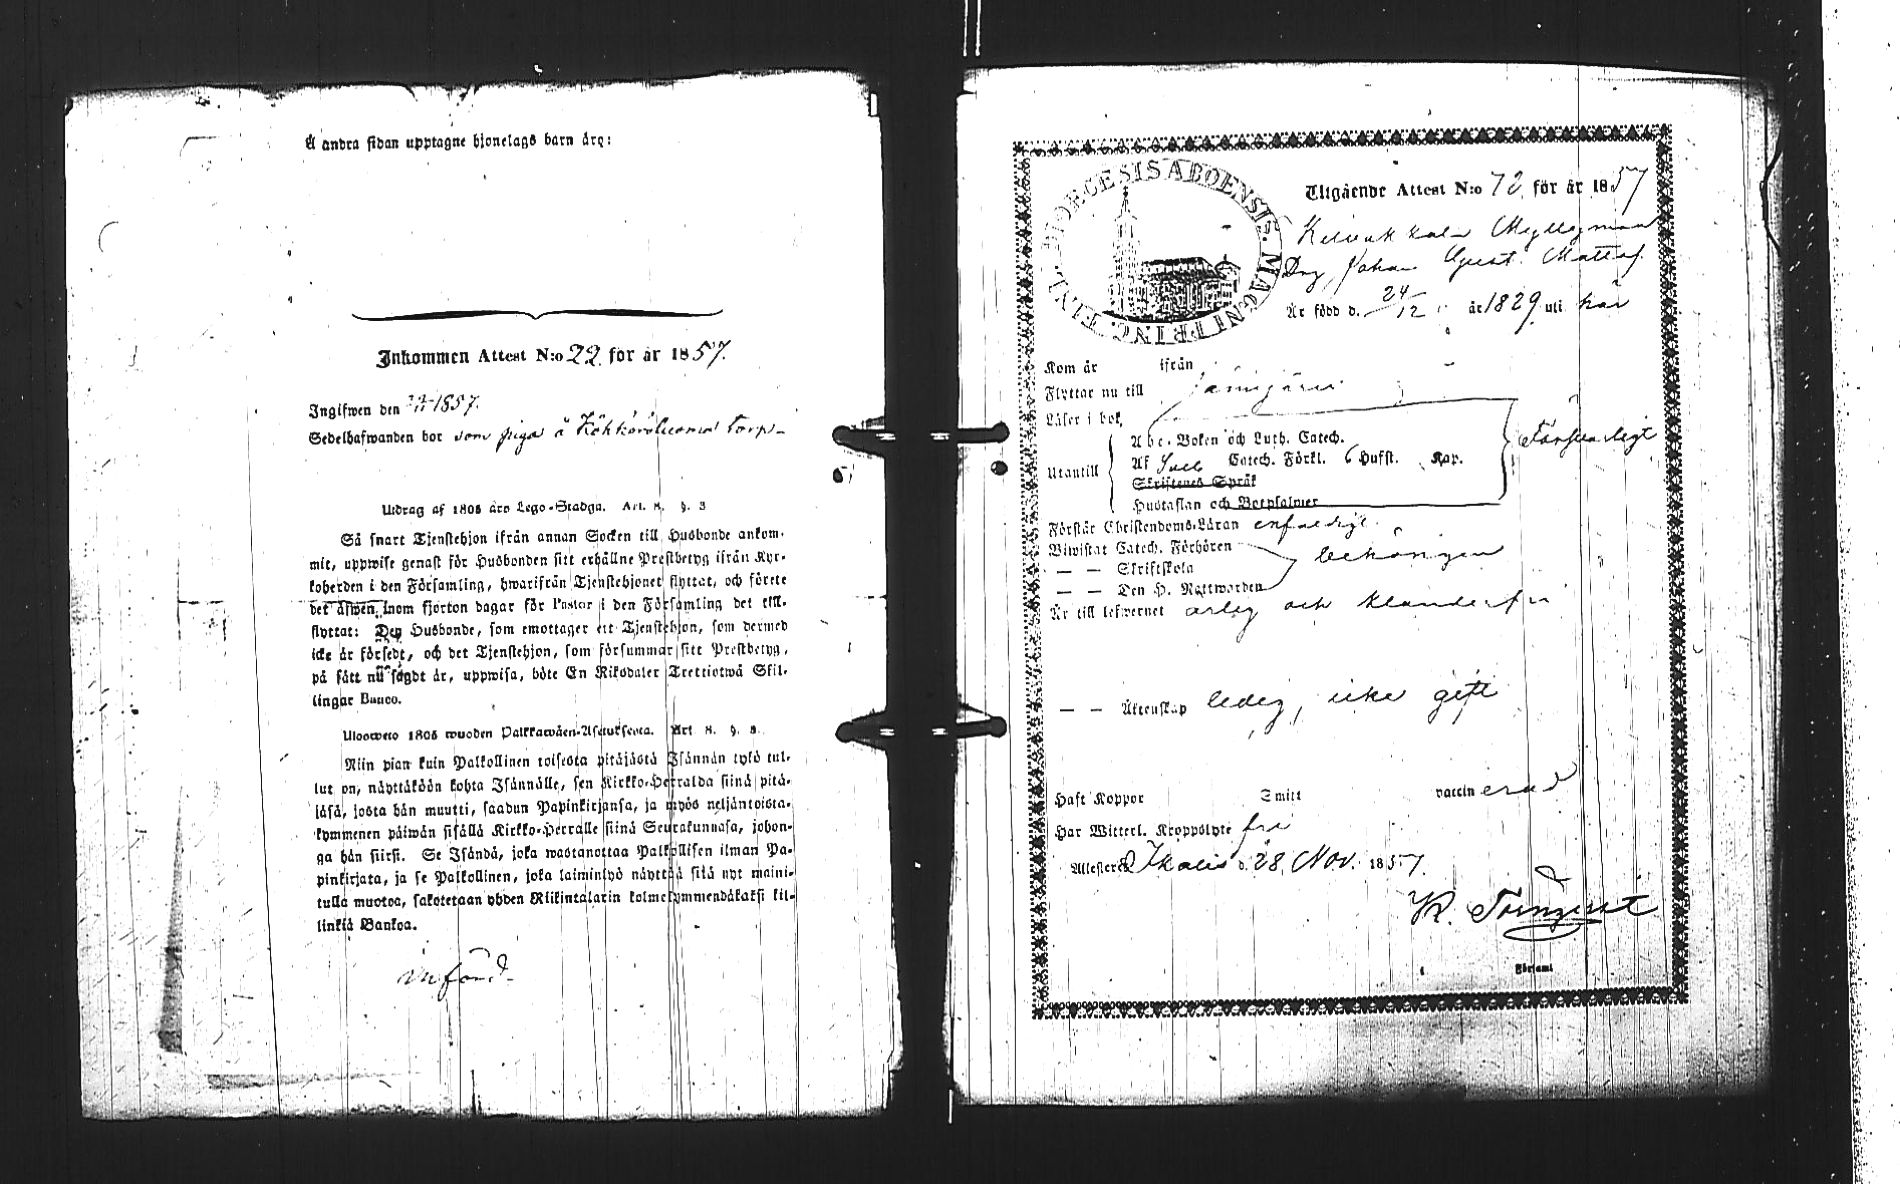 Å andra sidan upptagne hjonelags barn äro:
Inkommen Attest N:o 22 för år 1857.
Ingifwen den 1857.
Sedelhafwanden bor som piga å torp
Utdrag af 1805 års Lego-Stadga. Art. 8. §. 3
Så snart Tjenstehjon ifrån annan Socken till Husbonde ankom-
mit, uppwise genast för Husbonden sitt erhållne Prestbetyg ifrån Kyr-
koherden i den Församling, hwarifrån Tjenstehjonet flyttat, och förete
det äfwen inom fjorton dagar för Pastor i den Församling det till-
flyttat: Den Husbonde, som emottager ett Tjenstehjon, som dermed
icke är försedt, och det Tjenstehjon, som försummar sitt Prestbetyg,
på sätt nu sagdt är, uppwisa, böte En Riksdaler Trettiotwå Skil-
lingar Banco.
Ulosweto 1805 wuoden Palkkawäen-Asetuksesta. Art. 8. §. 3.
Niin pian kuin Palkollinen toisesta pitäjästä Isännän tykö tul-
lut on, näyttäköön kohta Isännälle, sen Kirkko-Herralda siinä pitä-
jäsä, josta hän muutti, saadun Papinkirjansa, ja myös neljäntoista-
kymmenen päiwän sisällä Kirkko-Herralle siinä Seurakunnasa, johon-
ga hän siirsi. Se Isändä, joka wastanottaa Palkollisen ilman Pa-
pinkirjata, ja se Palkollinen, joka laiminlyö näyttää sitä nyt maini-
tulla muotoa, sakotetaan yhden Riikintalarin kolmekymmendäkaksi kil-
linkiä Bankoa.
införd
DIOECESIS ABOENSIS. MAGNI PRINC.
Utgående Attest N:o 72 för år 1857
Johan Gust. Mattsf.
Är född d. 24/12 år 1829 uti här
Kom år ifrån
Flyttar nu till Jämijärvi
Läser i bok
Utantill
Abc-Boken och Luth. Catech.
Af Sveb. Catech. Förkl. 6 Hufst. Kap.
Skriftenes Språk
Hustaflan och Botpsalmer
Försvarligt
Förstår Christendoms-Läran enfaldigt.
Biwistat Catech. Förhören
— — Skriftskola
— — Den H. Nattwarden
behörigen
Är till lefwernet ärlig och klanderfri
— — Äktenskap ledig, icke gift
Haft Koppor Smitt vaccinerad
Har Witterl. Kroppslyte fri
Attesterad Ikalis d. 28. Nov. 1857.